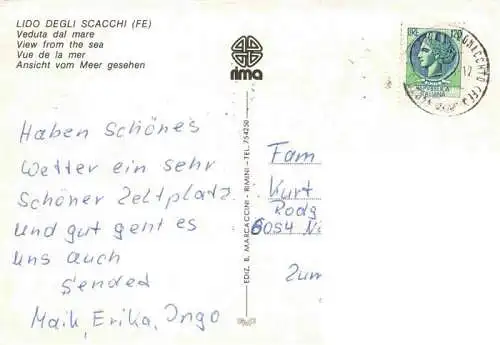 LIDO DEGLI SCACCHI (FE)
Veduta dal mare
View from the sea
Vue de la mer
Ansicht vom Meer gesehen
rima
LIRE 120
Haben Schönes
Wetter ein sehr
Schöner Zeltplatz
und gut geht es
uns auch
Sended
Maik, Erika, Ingo
EDIZ. B. MARCACCINI - RIMINI - TEL. 754250
Fam
Kurt
Rodg
6054 Ni
Zum